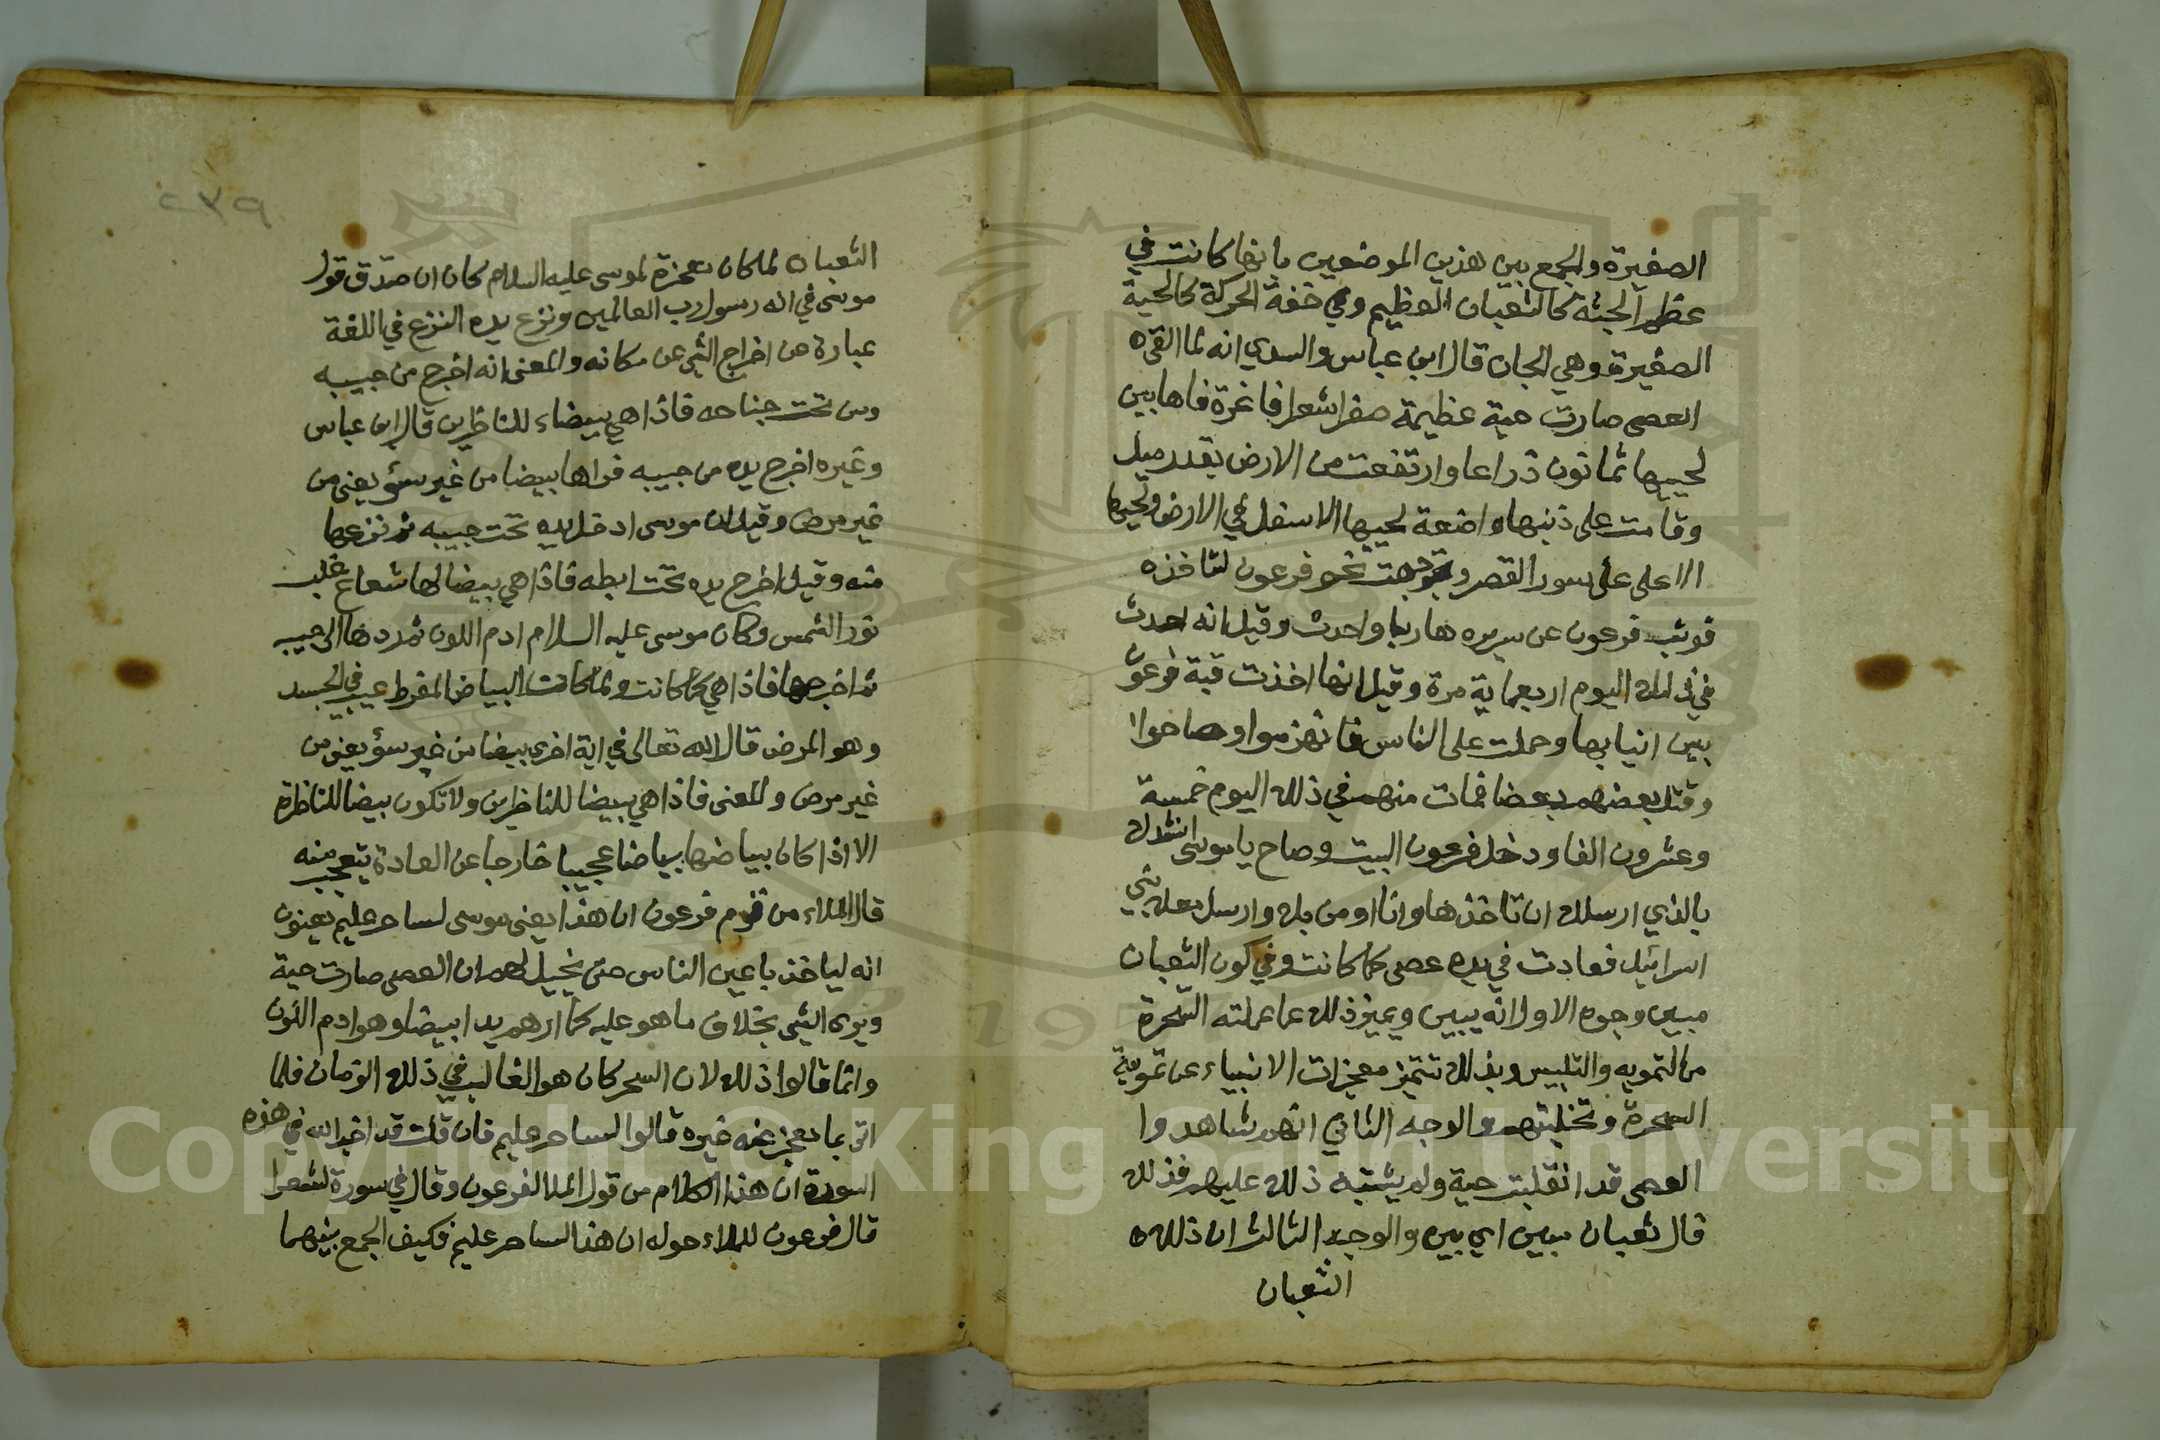 الصغيرة والجمع بين هذين الموضعين بانها كانت في
عظم الجثة كالثعبان العظيم وفي خفة الحركة كالحية
الصغيرة وهي الجان قال ابن عباس والسدي انه لما القى
العصى صارت حية عظيمة صفرا شعرا فاغرة فاها بين
لحييها ثمانون ذراعا وارتفعت من الارض بقدر ميل
وقامت على ذنبها واضعة لحييها الاسفل في الارض ولحيها
الاعلى على سور القصر وتوجهت نحو فرعون لتاخذه
فوثب فرعون عن سريره هاربا واحدث وقيل انه احدث
في ذلك اليوم اربعماية مرة وقيل انها اخذت قبة فرعون
بين انيابها وحملت على الناس فانهزموا وصاحوا
وقتل بعضهم بعضا فمات منهم في ذلك اليوم خمسة
وعشرون الفا ودخل فرعون البيت وصاح يا موسى انشدك
بالذي ارسلك ان تاخذها وانا اومن بك وارسل معك بني
اسرائيل فعادت في يده عصى كما كانت وفي كون الثعبان
مبين وجوه الاول انه يبين ويميز ذلك عما عملته السحرة
من التمويه والتلبيس وبذلك تتميز معجزات الانبياء عن تمويه
السحرة وتخيلتهم والوجه الثاني انهم شاهدوا
العصى قد انقلبت حية ولم يشتبه ذلك عليهم فذلك
قال ثعبان مبين اي بين والوجه الثالث ان ذلك
الثعبان
٢٣٩
الثعبان لما كان معجزة لموسى عليه السلام كان ان صدق قول
موسى في انه رسول رب العالمين ونزع يده النزع في اللغة
عبارة عن اخراج الشي عن مكانه والمعنى انه اخرج من جيبه
ومن تحت جناحه فاذا هي بيضاء للناظرين قال ابن عباس
وغيره اخرج يده من جيبه فراها بيضا من غير سؤ يعني من
غير مرض وقيل ان موسى ادخل يده تحت جيبه ثم نزعها
منه وقيل اخرج يده تحت ابطه فاذا هي بيضا لها شعاع غلب
نور الشمس وكان موسى عليه السلام ادم اللون ثم ردها الى جيبه
ثم اخرجها فاذا هي كما كانت ولما كانت البياض المفرط عيب في الجسد
وهو المرض قال الله تعالى في اية اخرى بيضا من غير سؤ يعني من
غير مرض والمعنى فاذا هي بيضا للناظرين ولا تكون بيضا للناظرة
الا اذا كان بياضها بياضا عجيبا خارجا عن العادة يتعجب منه
قال الملاء من قوم فرعون ان هذا يعني موسى لساحر عليم يعنون
انه لياخذ باعين الناس حتى يخيل لهم ان العصى صارت حية
ويرى الشي بخلاف ما هو عليه كما ارهم يدا بيضا وهو ادم اللون
وانما قالوا ذلك لان السحر كان هو الغالب في ذلك الزمان فلما
اتى بما يعجز عنه غيره قالوا لساحر عليم فان قلت قد اخبر الله في هذه
السورة ان هذا الكلام من قول الملا لفرعون وقال في سورة الشعرا
قال فرعون للملاء حوله ان هذا لساحر عليم فكيف الجمع بينهما
Copyright © King Saud University